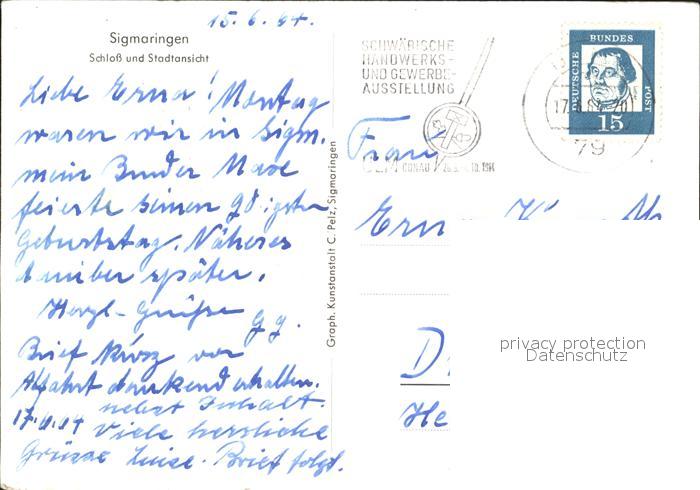 15.6.64.
Sigmaringen
Schloß und Stadtansicht
Liebe Erna! Montag
waren wir in Sigm.
mein Bruder Max
feierte seinen 90igsten
Geburtstag. Näheres
darüber später.
Herzl. Grüße
Brief kurz vor
Abfahrt dankend erhalten.
nebst Inhalt.
17.6.64 Viele herzliche
Grüsse Luise. Brief folgt.
Graph. Kunstanstalt C. Pelz, Sigmaringen
SCHWÄBISCHE
HANDWERKS-
UND GEWERBE-
AUSSTELLUNG
DONAU
DEUTSCHE BUNDES POST
15
79
Frau
Ern
D
He
privacy protection
Datenschutz